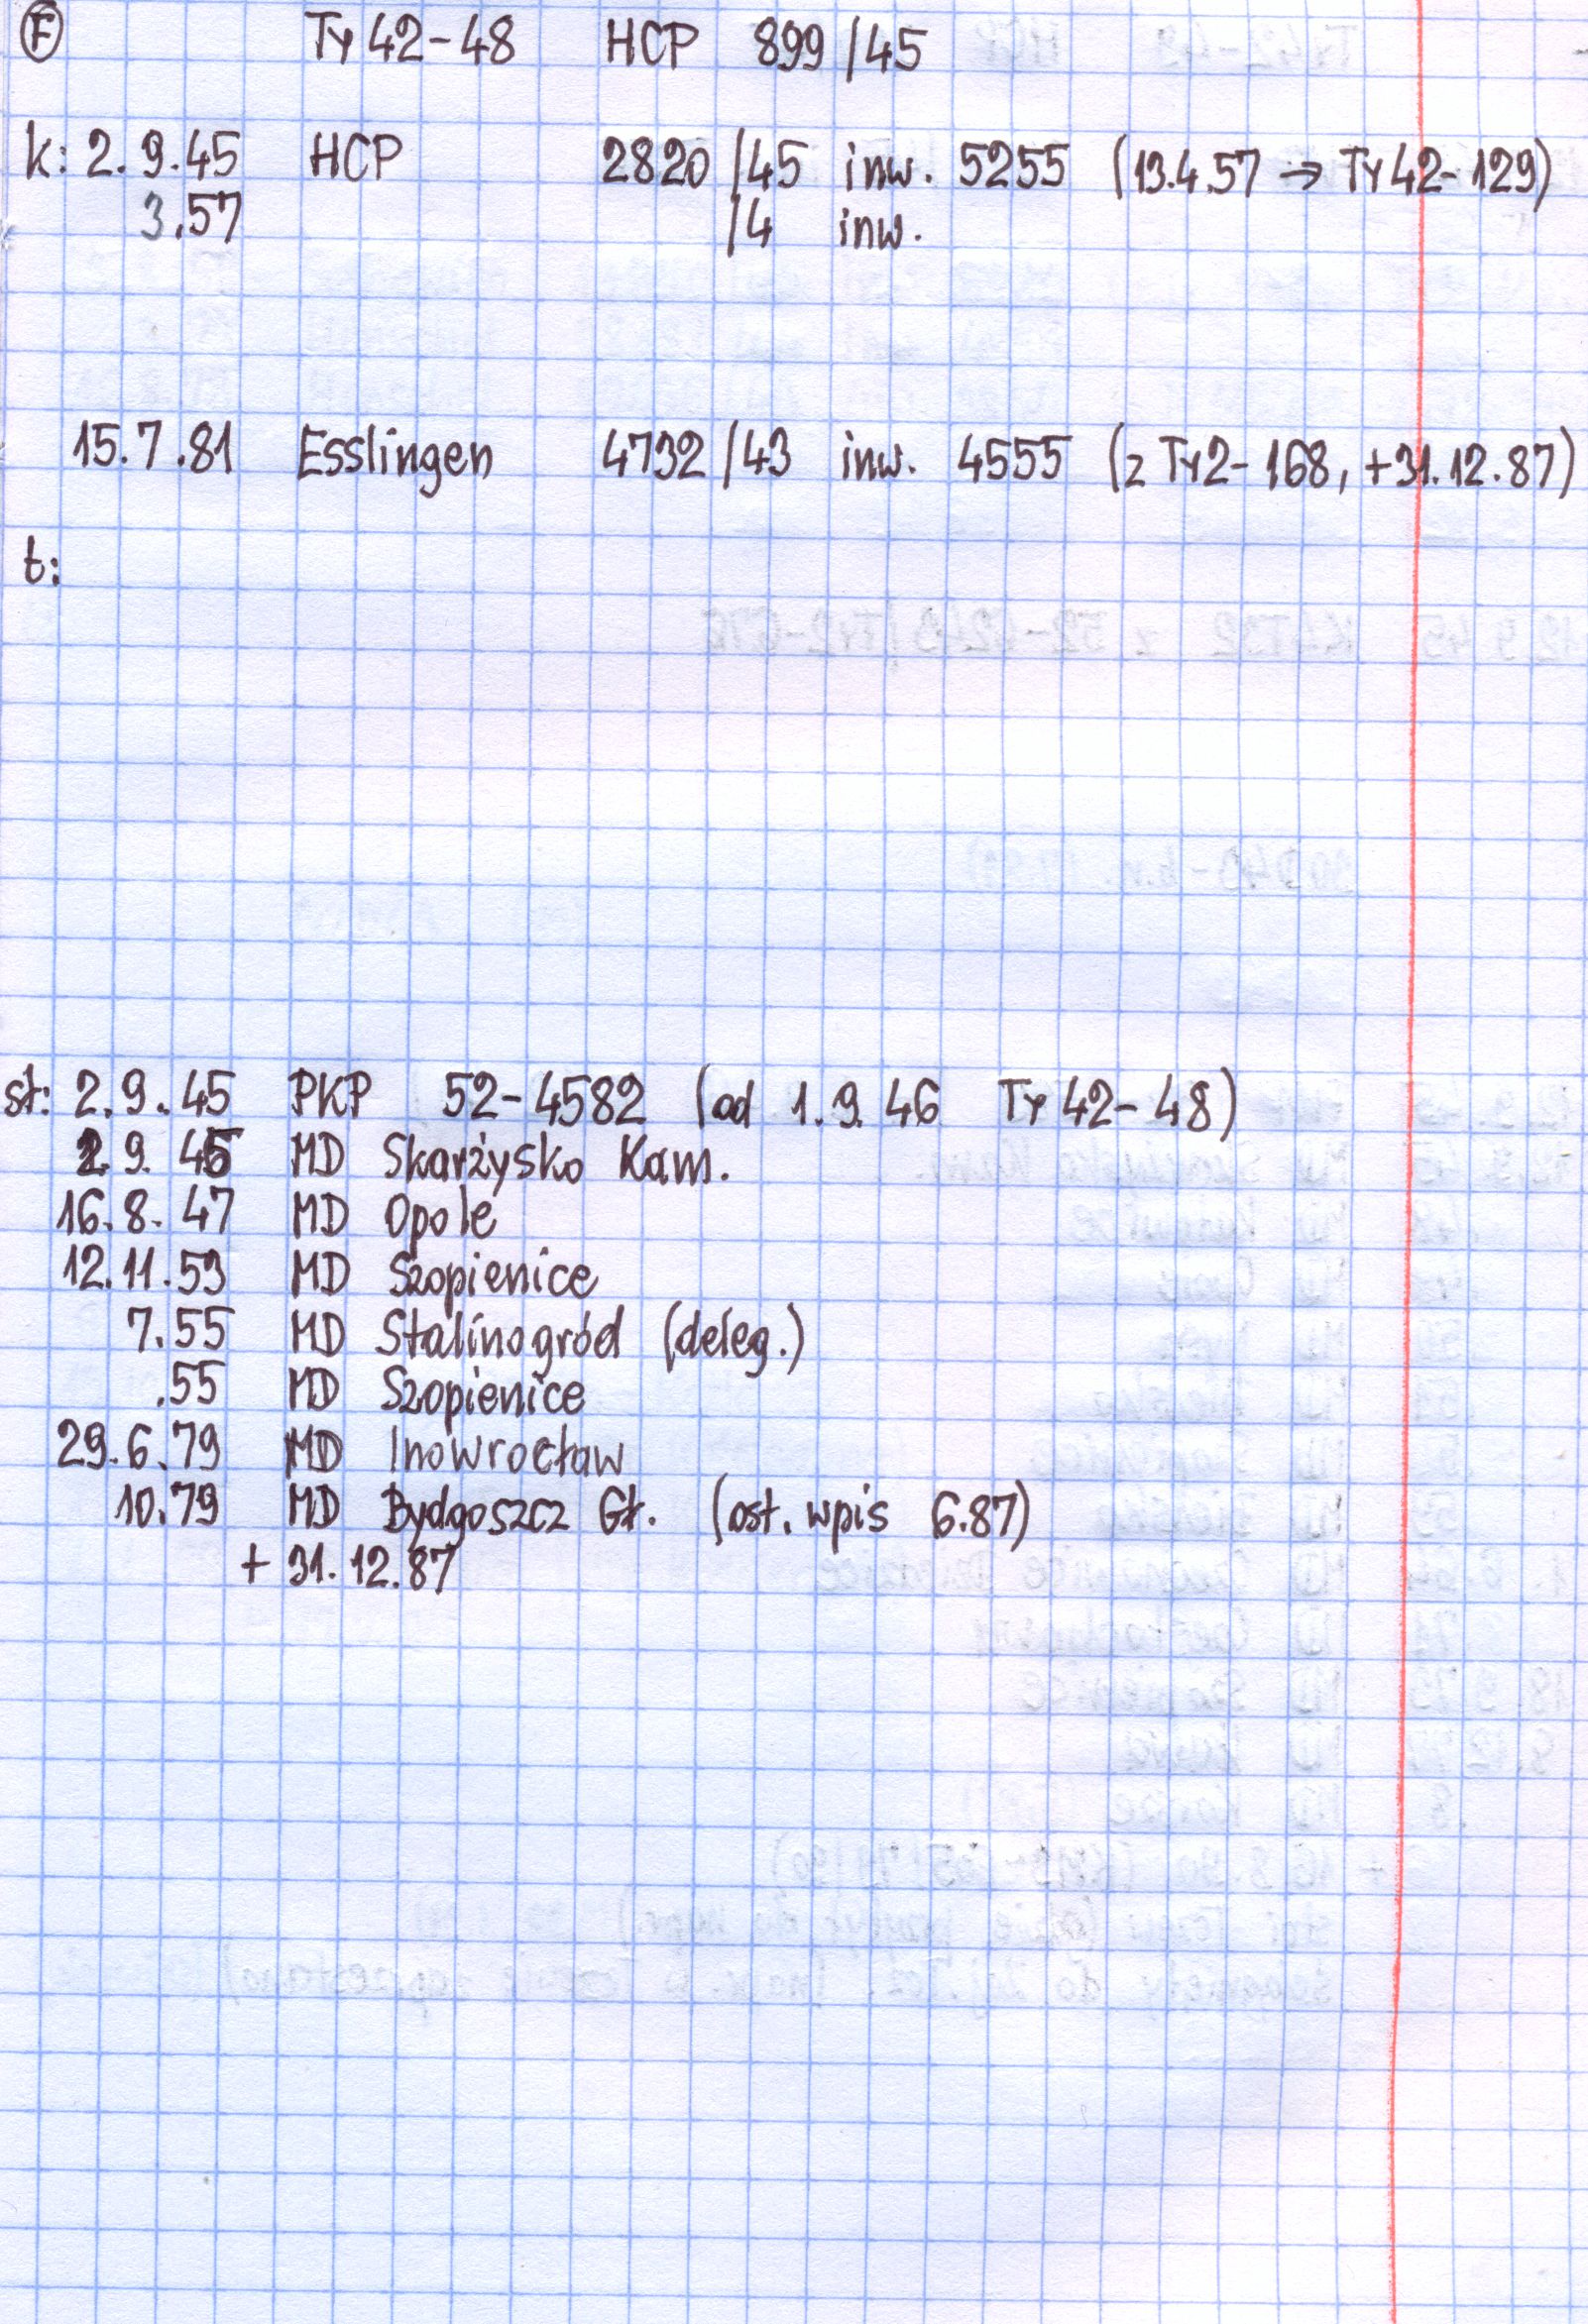 F Ty42-48 HCP 899/45
k: 2.9.45 HCP 2820/45 inw. 5255 (13.4.57 → Ty42-129)
3.57 /4 inw.
15.7.81 Esslingen 4732/43 inw. 4555 (z Ty2-168, +31.12.87)
t:
st: 2.9.45 PKP 52-4582 (od 1.9.46 Ty42-48)
2.9.45 MD Skarżysko Kam.
16.8.47 MD Opole
12.11.53 MD Szopienice
7.55 MD Stalinogród (deleg.)
.55 MD Szopienice
29.6.79 MD Inowrocław
10.79 MD Bydgoszcz Gł. (ost. wpis 6.87)
+ 31.12.87